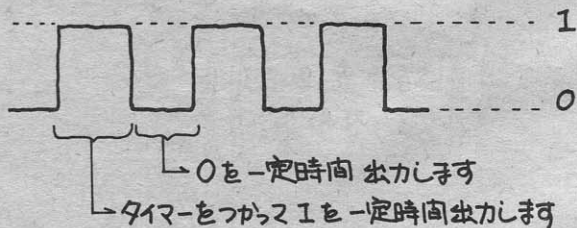 1
0
0を一定時間出力します
タイマーをつかって1を一定時間出力します